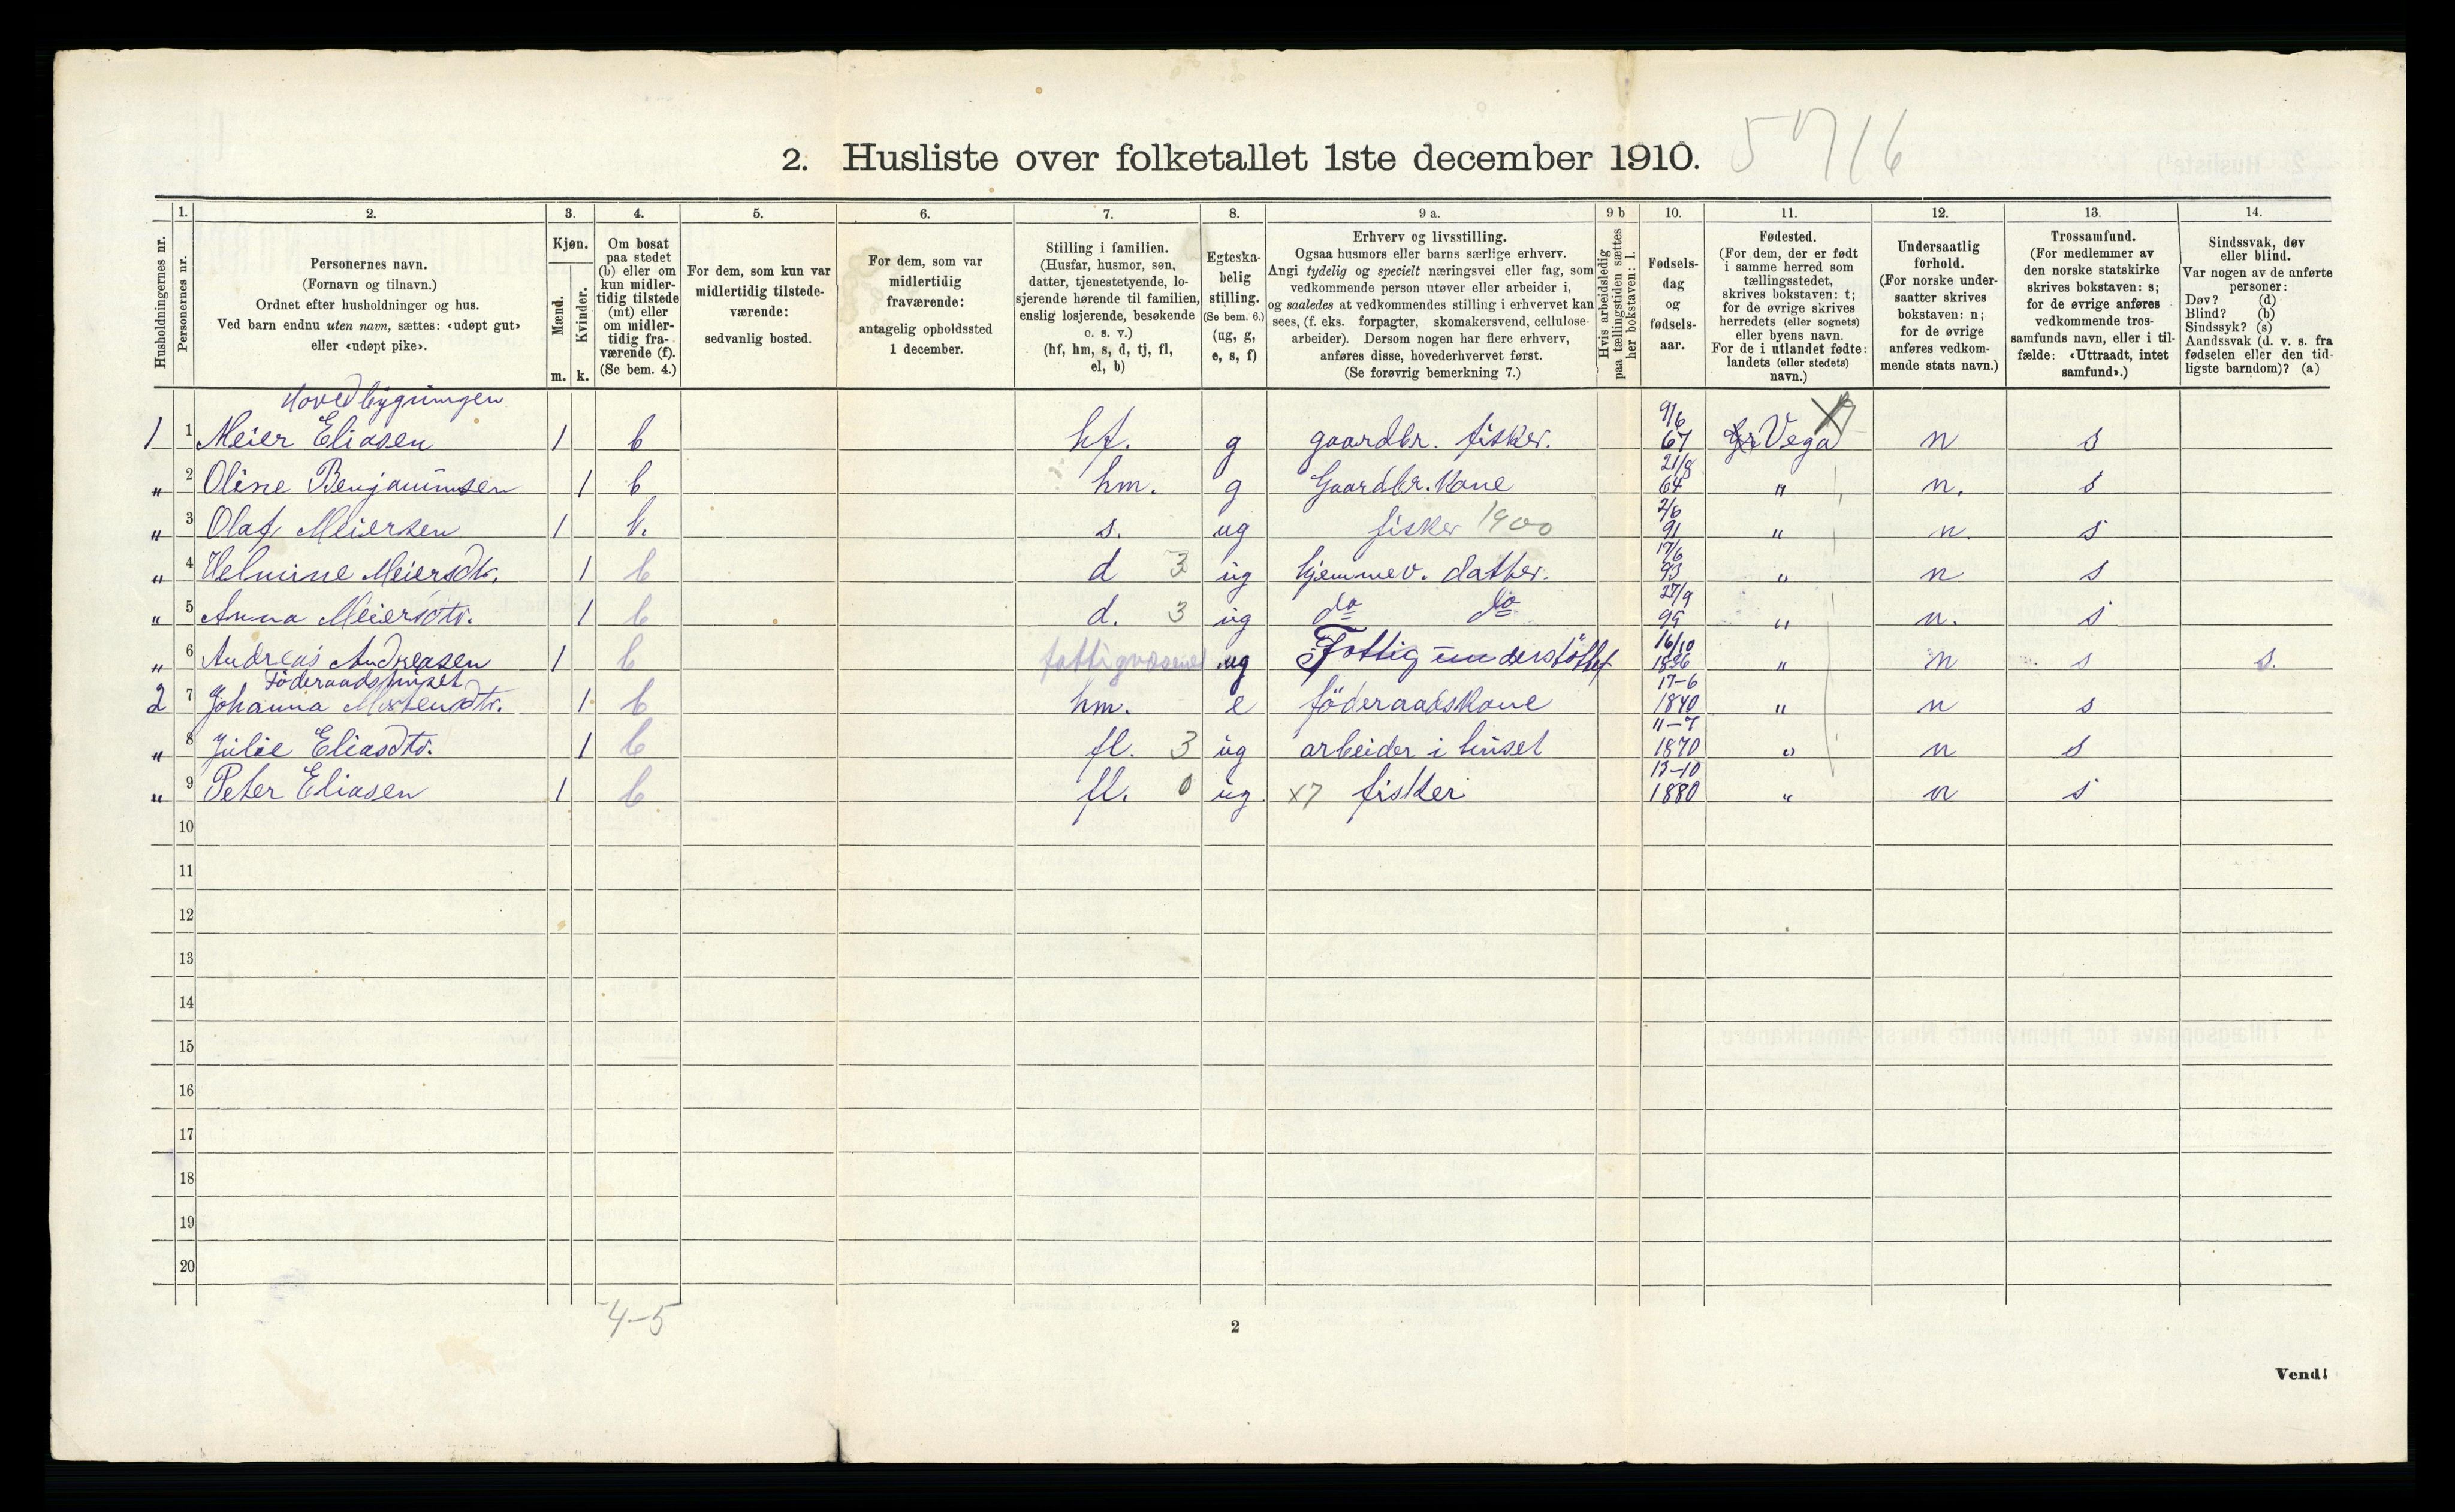 2. Husliste over folketallet 1ste december 1910. 5716
Husholdningernes nr.
1. Personernes nr.
2. Personernes navn.
(Fornavn og tilnavn.)
Ordnet efter husholdninger og hus.
Ved barn endnu uten navn, sættes: «udøpt gut»
eller «udøpt pike».
3. Kjøn.
Mænd. Kvinder.
m. k.
4. Om bosat
paa stedet
(b) eller om
kun midler-
tidig tilstede
(mt) eller
om midler-
tidig fra-
værende (f).
(Se bem. 4.)
5. For dem, som kun var
midlertidig tilstede-
værende:
sedvanlig bosted.
6. For dem, som var
midlertidig
fraværende:
antagelig opholdssted
1 december.
7. Stilling i familien.
(Husfar, husmor, søn,
datter, tjenestetyende, lo-
sjerende hørende til familien,
enslig losjerende, besøkende
o. s. v.)
(hf, hm, s, d, tj, fl,
el, b)
8. Egteska-
belig
stilling.
(Se bem. 6.)
(ug, g,
e, s, f)
9 a. Erhverv og livsstilling.
Ogsaa husmors eller barns særlige erhverv.
Angi tydelig og specielt næringsvei eller fag, som
vedkommende person utøver eller arbeider i,
og saaledes at vedkommendes stilling i erhvervet kan
sees, (f. eks. forpagter, skomakersvend, cellulose-
arbeider). Dersom nogen har flere erhverv,
anføres disse, hovederhvervet først.
(Se forøvrig bemerkning 7.)
9 b Hvis arbeidsledig
paa tællingstiden sættes
her bokstaven: l.
10. Fødsels-
dag
og
fødsels-
aar.
11. Fødested.
(For dem, der er født
i samme herred som
tællingsstedet,
skrives bokstaven: t;
for de øvrige skrives
herredets (eller sognets)
eller byens navn.
For de i utlandet fødte:
landets (eller stedets)
navn.)
12. Undersaatlig
forhold.
(For norske under-
saatter skrives
bokstaven: n;
for de øvrige
anføres vedkom-
mende stats navn.)
13. Trossamfund.
(For medlemmer av
den norske statskirke
skrives bokstaven: s;
for de øvrige anføres
vedkommende tros-
samfunds navn, eller i til-
fælde: «Uttraadt, intet
samfund».)
14. Sindssvak, døv
eller blind.
Var nogen av de anførte
personer:
Døv? (d)
Blind? (b)
Sindssyk? (s)
Aandssvak (d. v. s. fra
fødselen eller den tid-
ligste barndom)? (a)
Hovedbygningen
1 1 Meier Eliasen 1 b hf. g gaardbr. fisker. 9/6 67 Vega n s
" 2 Oline Benjaminsen 1 b hm. g Gaardbr. Kone 21/8 64 " n. s
" 3 Olaf Meiersen 1 b. s. ug fisker 1900 2/6 91 " n. s
" 4 Helmine Meiersdtr. 1 b d 3 ug hjemmev. datter. 17/6 93 " n s
" 5 Anna Meiersdtr. 1 b d. 3 ug do do 27/9 95 " n. s
" 6 Andreas Andreasen 1 b fattigvæsenet ug Fattig understöttet 16/10 1836 " n s s.
Föderaadshuset
2 7 Johanna Mortensdtr. 1 b hm. e föderaadskone 17-6 1840 " n s
" 8 Julie Eliasdtr. 1 b fl. 3 ug arbeider i huset 11-7 1870 " n s
" 9 Peter Eliasen 1 b fl. 0 ug x7 fisker 13-10 1880 " n s
10
11
12
13
14
15
16
17
18
19
20
4-5
2
Vend!